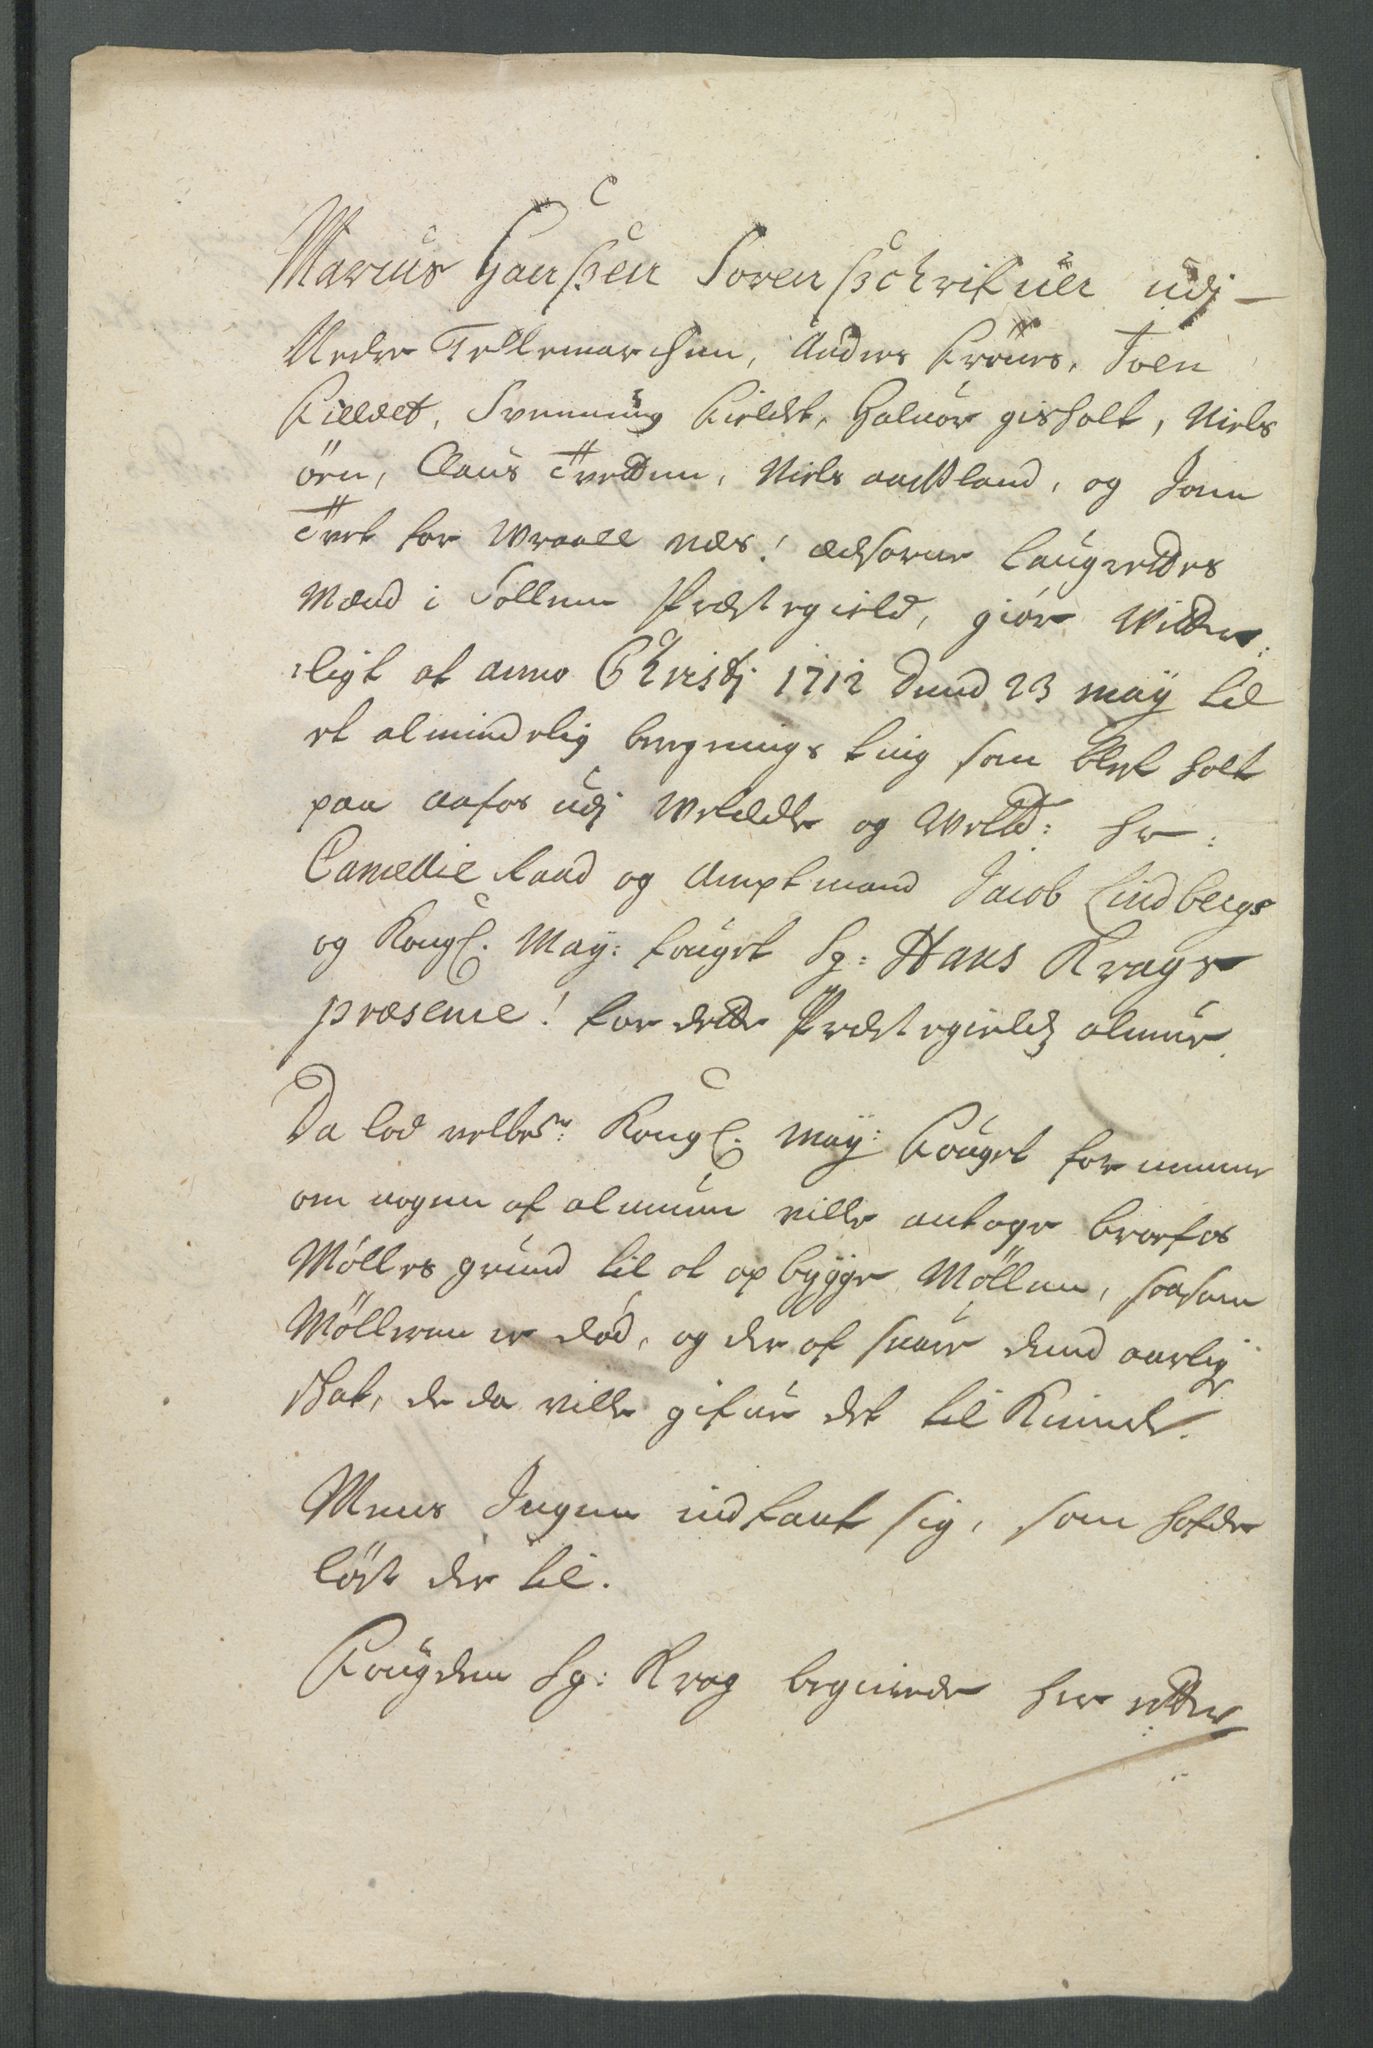 Marcus Hanßen Sorenßchrifuer udj
Nedre Tellemarchen, Anders Crönes, Joen
Fieldet, Svenning Fieldet, Haluor gisholt, Niels
örn, Claus Tvedten, Niels aasland, og Jonn
Tvet for Wraall næs! Ædsorne Laugrettes
Mænd i Sollum Præstegield, giör Witter-
ligt at anno Christj 1712 dend 23 maÿ til
et almindelig bevgnings ting som blef holt
paa aafos udj Welædle og Welb: hr:
Cancellie Raad og Amptmand Jacob Lindbergs
og Kongl. May: fouget Sg: Hans Krags
præsence! for dette Præstegields almue.
Da lod velbem: Kongl. May: Fouget fornemme
om nogen af almuen ville antage braafos
Mölles grund til at opbygge Möllen, saasom
Mölleren er död, og der af suare dend aarlig
skat, de da ville gifue det til Kiende.
Mens Ingen indfant sig, som hafde
löst der til.
Fougden Sg: Krag begierede her efter